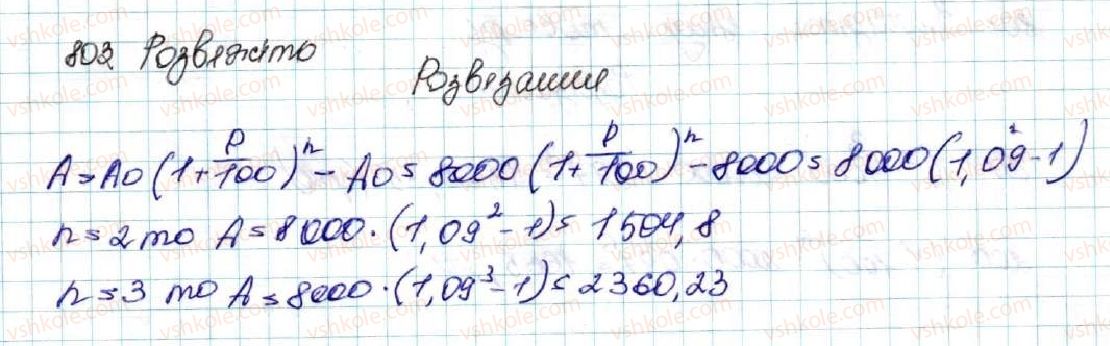 803. Розв'яжіть
Розв'язання
A = A0 (1 + p/100)^n - A0 = 8000 (1 + p/100)^n - 8000 = 8000 (1,09^2 - 1)
n = 2 то A = 8000 · (1,09^2 - 1) = 1504,8
n = 3 то A = 8000 · (1,09^3 - 1) = 2360,23